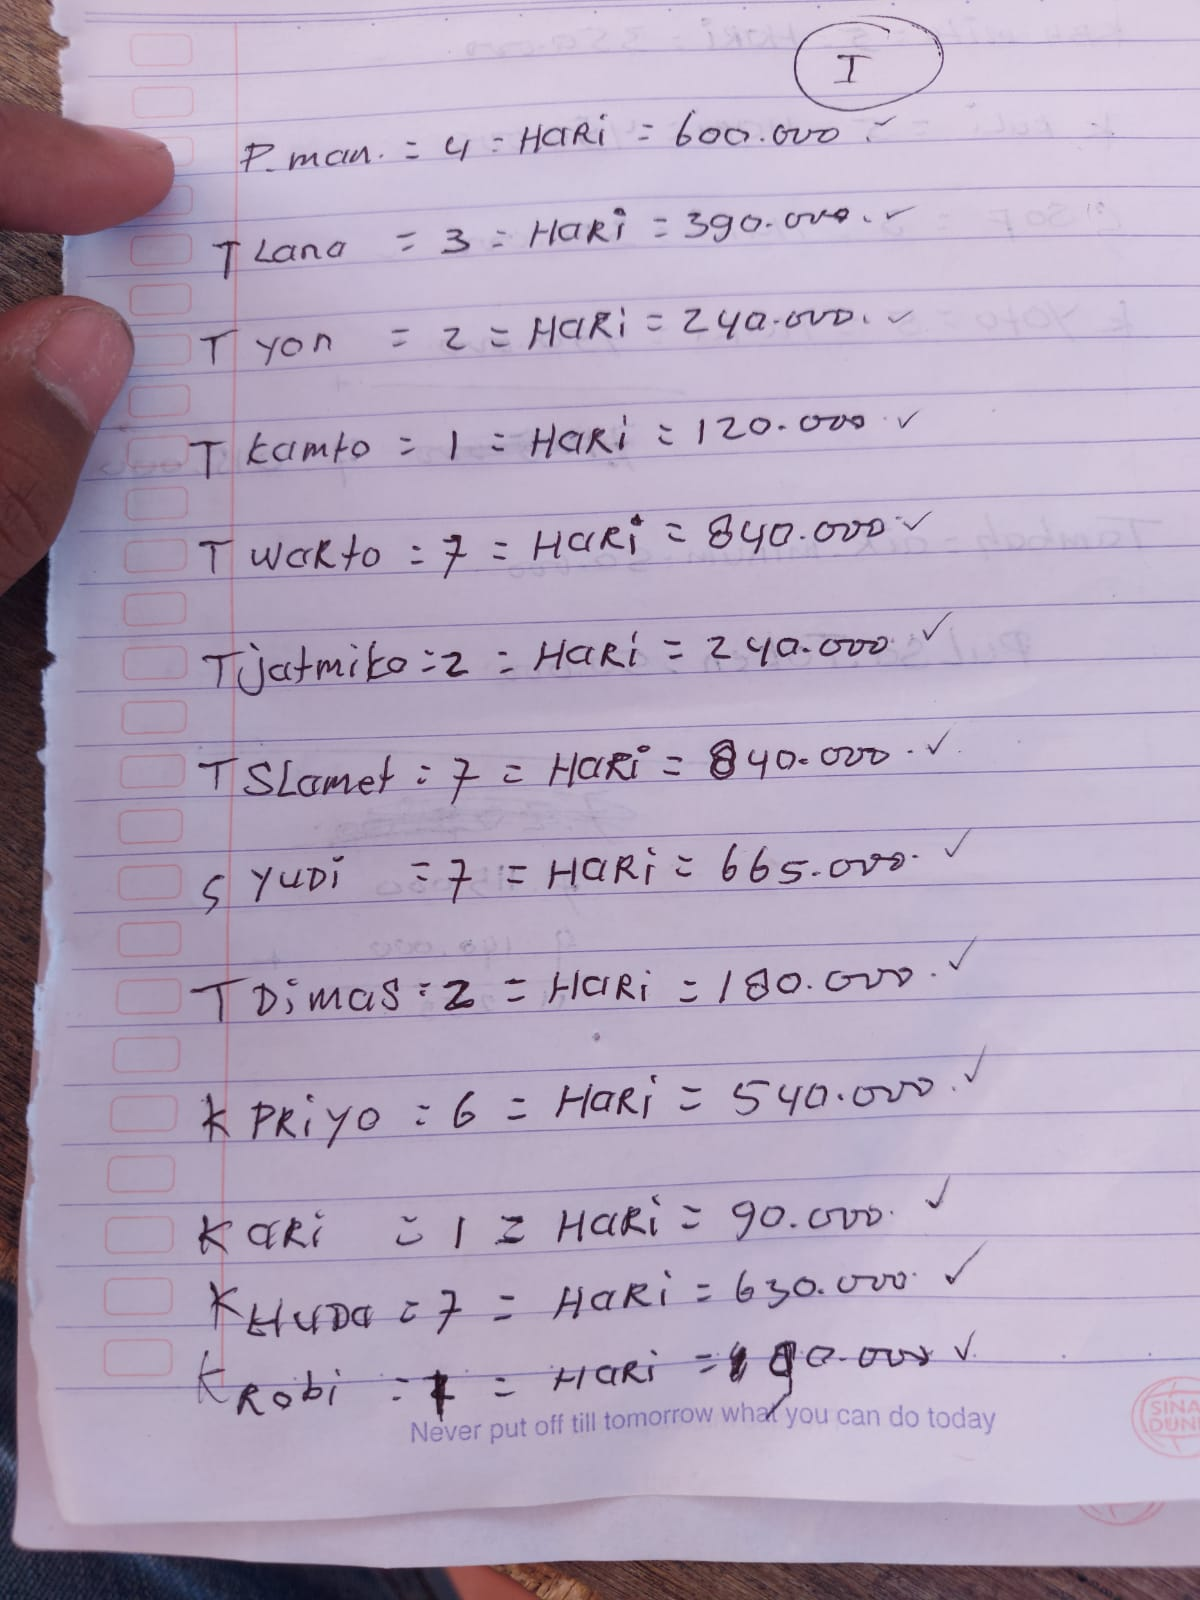 I
P. man. = 4 = HARi = 600.000 ✓
T Lana = 3 = HARi = 390.000. ✓
T yon = 2 = HARi = 240.000. ✓
T kamto = 1 = HARi = 120.000 ✓
T WaRto = 7 = HARi = 840.000 ✓
T jatmiko = 2 = HARi = 240.000 ✓
T SLamet = 7 = HARi = 840.000. ✓
S YUDi = 7 = HARi = 665.000. ✓
T DiMAS = 2 = HARi = 180.000. ✓
K PRiYO = 6 = HARi = 540.000. ✓
K ARi = 1 = HARi = 90.000. ✓
K HUDA = 7 = HARi = 630.000. ✓
K Robi = 1 = HARi = 90.000 ✓
Never put off till tomorrow what you can do today
SINA
DUN